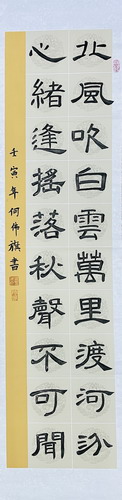 北風吹白雲萬里渡河汾
心緒逢搖落秋聲不可聞
壬寅年何偉旗書